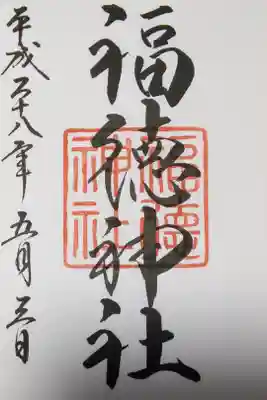 福徳神社
福德神社
平成二十八年五月三日